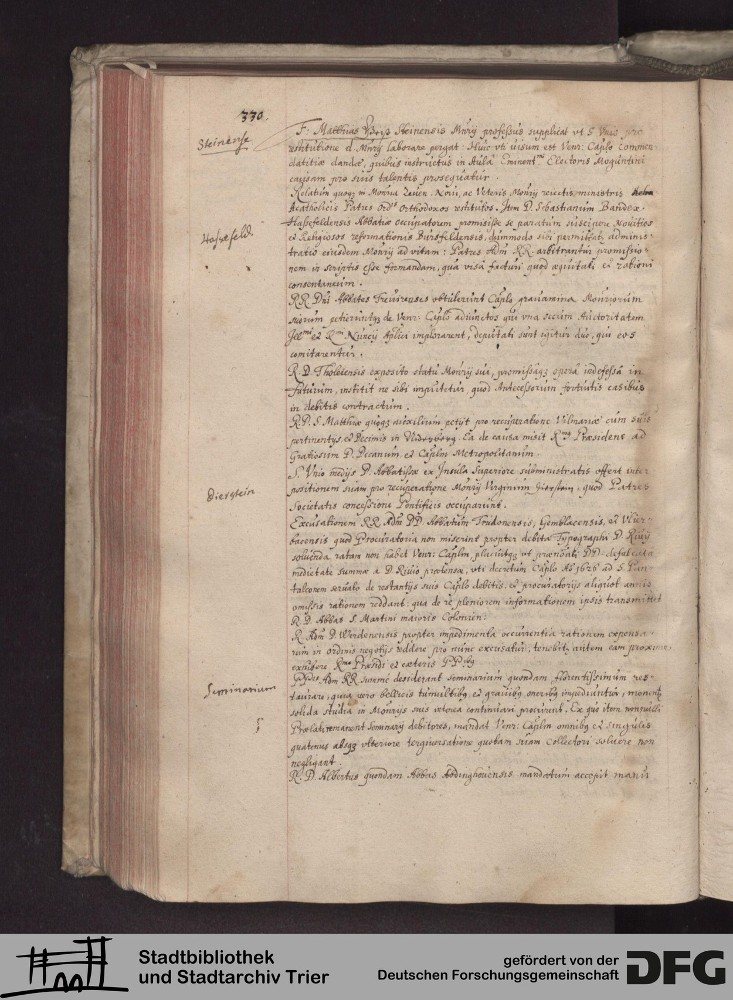 330.
Steinense
F. Matthias Steinensis Mnrij professus supplicat vt S Vnio pro
restitutione d. Mnrij laborare pergat. Huic vti uisum est Venr: Caplo commen
datitiæ dandæ, quibus instructus in Aula Eminent.mi Electoris Moguntini
causam pro suis talentis prosequatur.
Relatum quoq; in Monria Noui, ac Veteris Monrij reiectis ministris
Acatholicis Patres Ord.s Orthodoxos restitutos. Item D. Sebastianum
Hersfeld
Hassefeldensis Abbatiæ occupatorem promisisse se paratum suscipere Nouitios
et Religiosos reformationis Bursfeldensis, dummodo sibi permittat adminis-
tratio eiusdem Monrij ad vitam: Patres Adm RR. arbitrantur promissio-
nem in scriptis esse formandam, qua visa facturi quod æquitati et rationi
consentaneum.
RR. Dni Abbates Treuirenses obtulerunt Caplo grauamina Monriorum
suorum petieruntq; de Venr: Caplo adiunctos qui vna secum Auctoritatem
Illmi et Rmi Nuncij Aplici implorarent, deputati sunt igitur duo, qui eos
comitarentur.
R. D. Tholeiensis exposito statu Monrij sui, promissaq; opera indefessa in
futurum, institit ne sibi imputetur quod Antecessorum fortuitis casibus
in debitis contractum.
R. P. S. Matthiæ quoq; auxilium petijt pro recuperatione Vilmariæ cum suis
pertinentijs et Decimis in Ea de causa misit Rmus Præsidens ad
Gratiosum D. Decanum et Caplm Metropolitanum.
S. Vnio medijs D. Abbatissæ ex Insula Superiore subministratis offert inter
Dierstein
positionem suam pro recuperatione Monrij Virginum Dierstein, quod Patres
Societatis concessione Pontificis occuparunt.
Excusationem RR. Adm DD. Abbatum Trudonensis, Gemblacensis, et Vlier-
bacensis quod Procuratoria non miserint propter debita Typographi D. Riuij
soluenda ratam non habet Venr: Caplm, plensati DD. defalcata
medietate summæ a D. Riuio prætensæ, vti decretum Caplo Aº 1626 ad S. Pan-
taleonem seruato de restantijs suis Caplo debitis, et procuratorijs aliquot annis
omissis rationem reddant: qua de re pleniorem informationem ipsis transmittet
R. D. Abbas S. Martini maioris Coloniæ.
R. Adm D. Werdenensis propter impedimenta occurrentia rationem expensa-
rum in ordinis negotijs reddere pro nunc excusatur, tenebit autem eam proxime
exhibere Rmo Præsidi et cæteris PP.
Seminarium
PP. Adm RR summè desiderant seminarium quondam florentissimum res-
taurare; quia vero bellicis tumultibq; et grauibq; oneribq; impediuntur, monent
solida studia in Monrijs suis interea continuari procurent. Ex quo item nonnulli
Prælati remanent Seminarij debitores, mandat Venr: Caplm omnibq; et singulis
quatenus absq; vlteriore tergiuersatione quotam suam Collectori soluere non
negligant.
R. D. Albertus quondam Abbas Abdinghouensis mandatum accepit manu
Stadtbibliothek
und Stadtarchiv Trier
gefördert von der
Deutschen Forschungsgemeinschaft
DFG